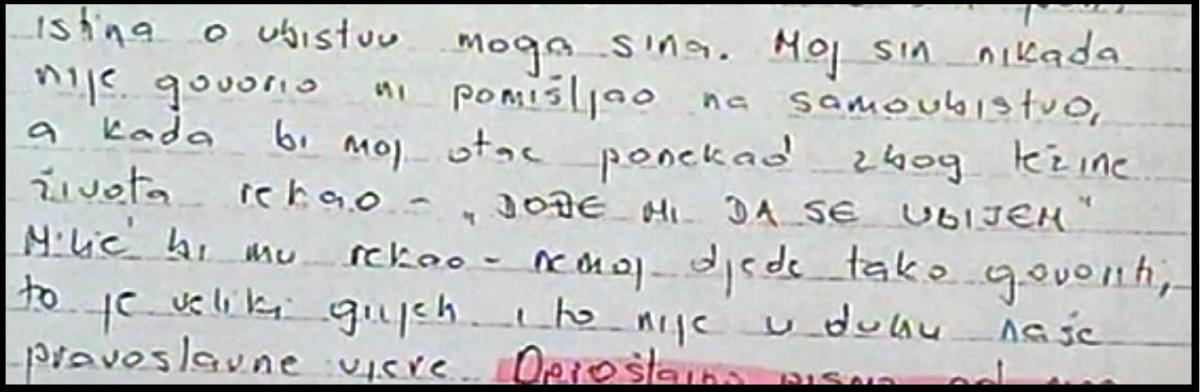 istina o ubistvu moga sina. Moj sin nikada
nije govorio ni pomišljao na samoubistvo,
a kada bi moj otac ponekad zbog težine
života rekao - "DOĐE MI DA SE UBIJEM"
Milić bi mu rekao - nemoj djede tako govoriti,
to je veliki grijeh i to nije u duhu naše
pravoslavne vjere. Oproštajno pismo